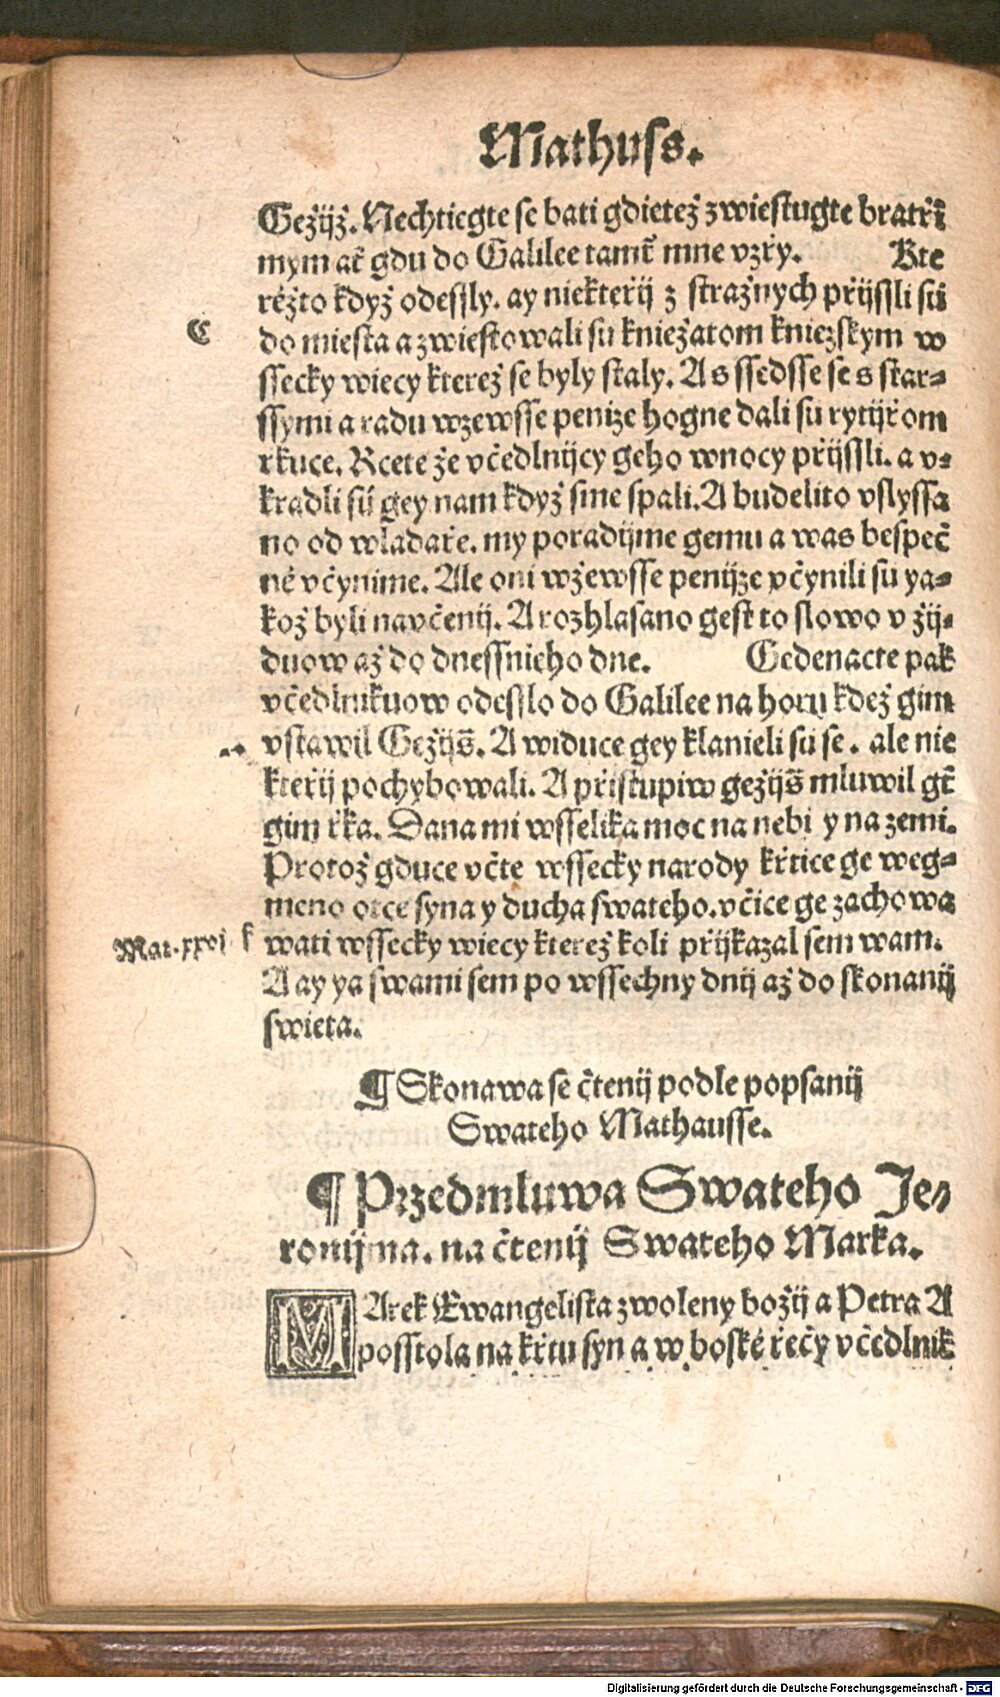 Mathuss.
Gežijž. Nechtiegte se bati gdietež zwiestugte bratři
mym ať gdu do Galilee tamť mne vzřy. Kte
réžto když odessly. ay niekteřij z stražnych přijssli su
C do miesta a zwiestowali su kniežatom kniezskym w
ssecky wiecy kterež se byly staly. A s ssedsse se s star-
ssymi a radu wzewsse penize hogne dali su rytijřom
rkuce. Rcete že včedlnijcy geho wnocy přijssli. a v-
kradli su gey nam když sme spali. A budelito vslyssa
no od wladaře. my poradijme gemu a was bespeč
né včynime. Ale oni wžewsse penijze včynili su ya-
kož byli navčenij. A rozhlasano gest to slowo v žij-
duow až do dnessnieho dne. Gedenacte pak
včedlnikuow odesslo do Galilee na horu kdež gim
vstawil Gežijs̄. A widuce gey klanieli su se. ale nie
kteřij pochybowali. A přistupiw gežijs̄ mluwil gt̄
gim řka. Dana mi wsselika moc na nebi y na zemi.
Protož gduce včte wssecky narody křtice ge weg-
meno otce syna y ducha swateho. včice ge zachowa
Mat. xxvi f wati wssecky wiecy kterež koli přijkazal sem wam.
A ay ya swami sem po wssechny dnij až do skonanij
swieta.
¶ Skonawa se čtenij podle popsanij
Swateho Mathausse.
¶ Przedmluwa Swateho Je-
ronijma. na čtenij Swateho Marka.
MArek Ewangelista zwoleny božij a Petra A
posstola na křtu syn a w boské řečy včedlnik
Digitalisierung gefördert durch die Deutsche Forschungsgemeinschaft - DFG